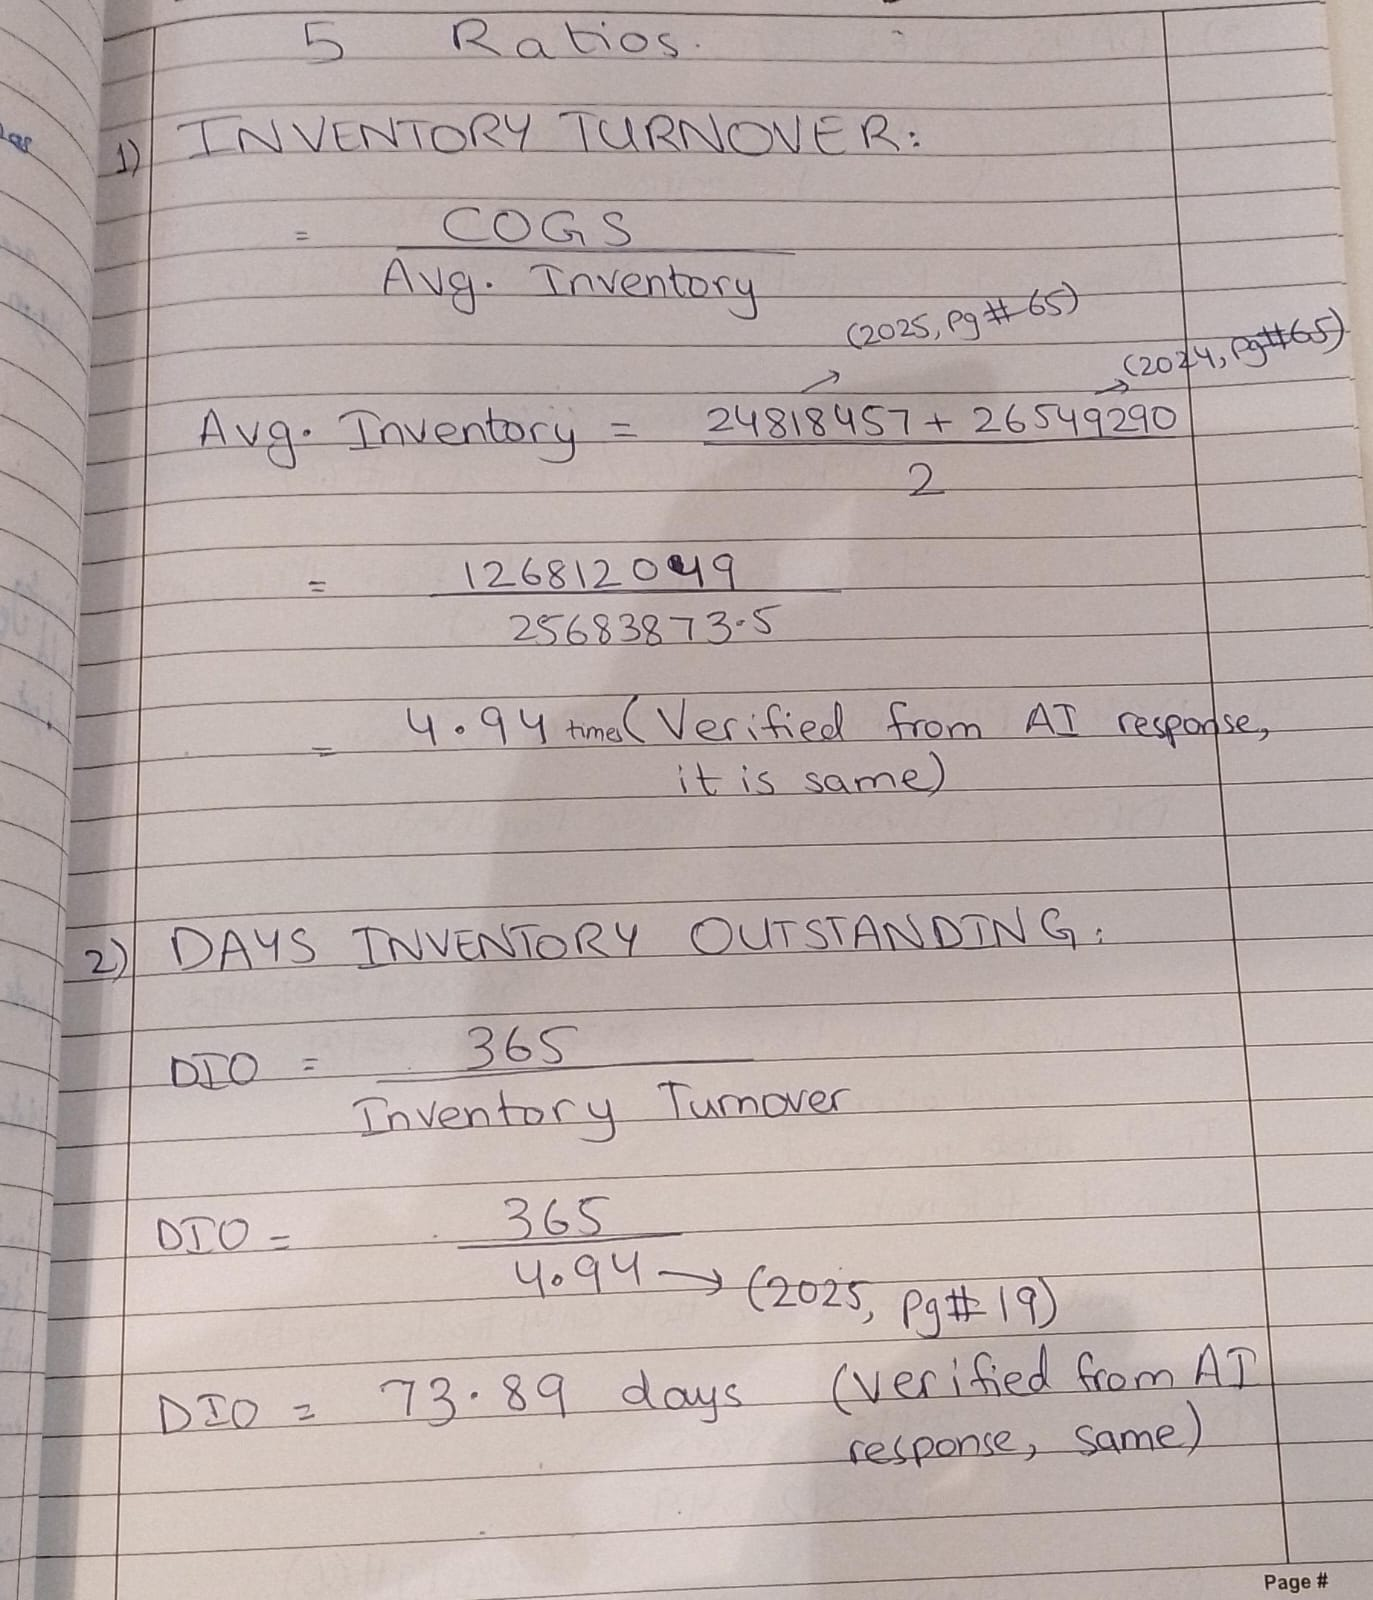 5 Ratios.
1) INVENTORY TURNOVER:
= COGS
Avg. Inventory
(2025, Pg # 65)
(2024, Pg # 65)
Avg. Inventory = 24818457 + 26549290
2
= 126812049
25683873.5
= 4.94 times (Verified from AI response,
it is same)
2) DAYS INVENTORY OUTSTANDING:
DIO = 365
Inventory Turnover
DIO = 365
4.94 → (2025, Pg # 19)
DIO = 73.89 days (verified from AI
response, same)
Page #